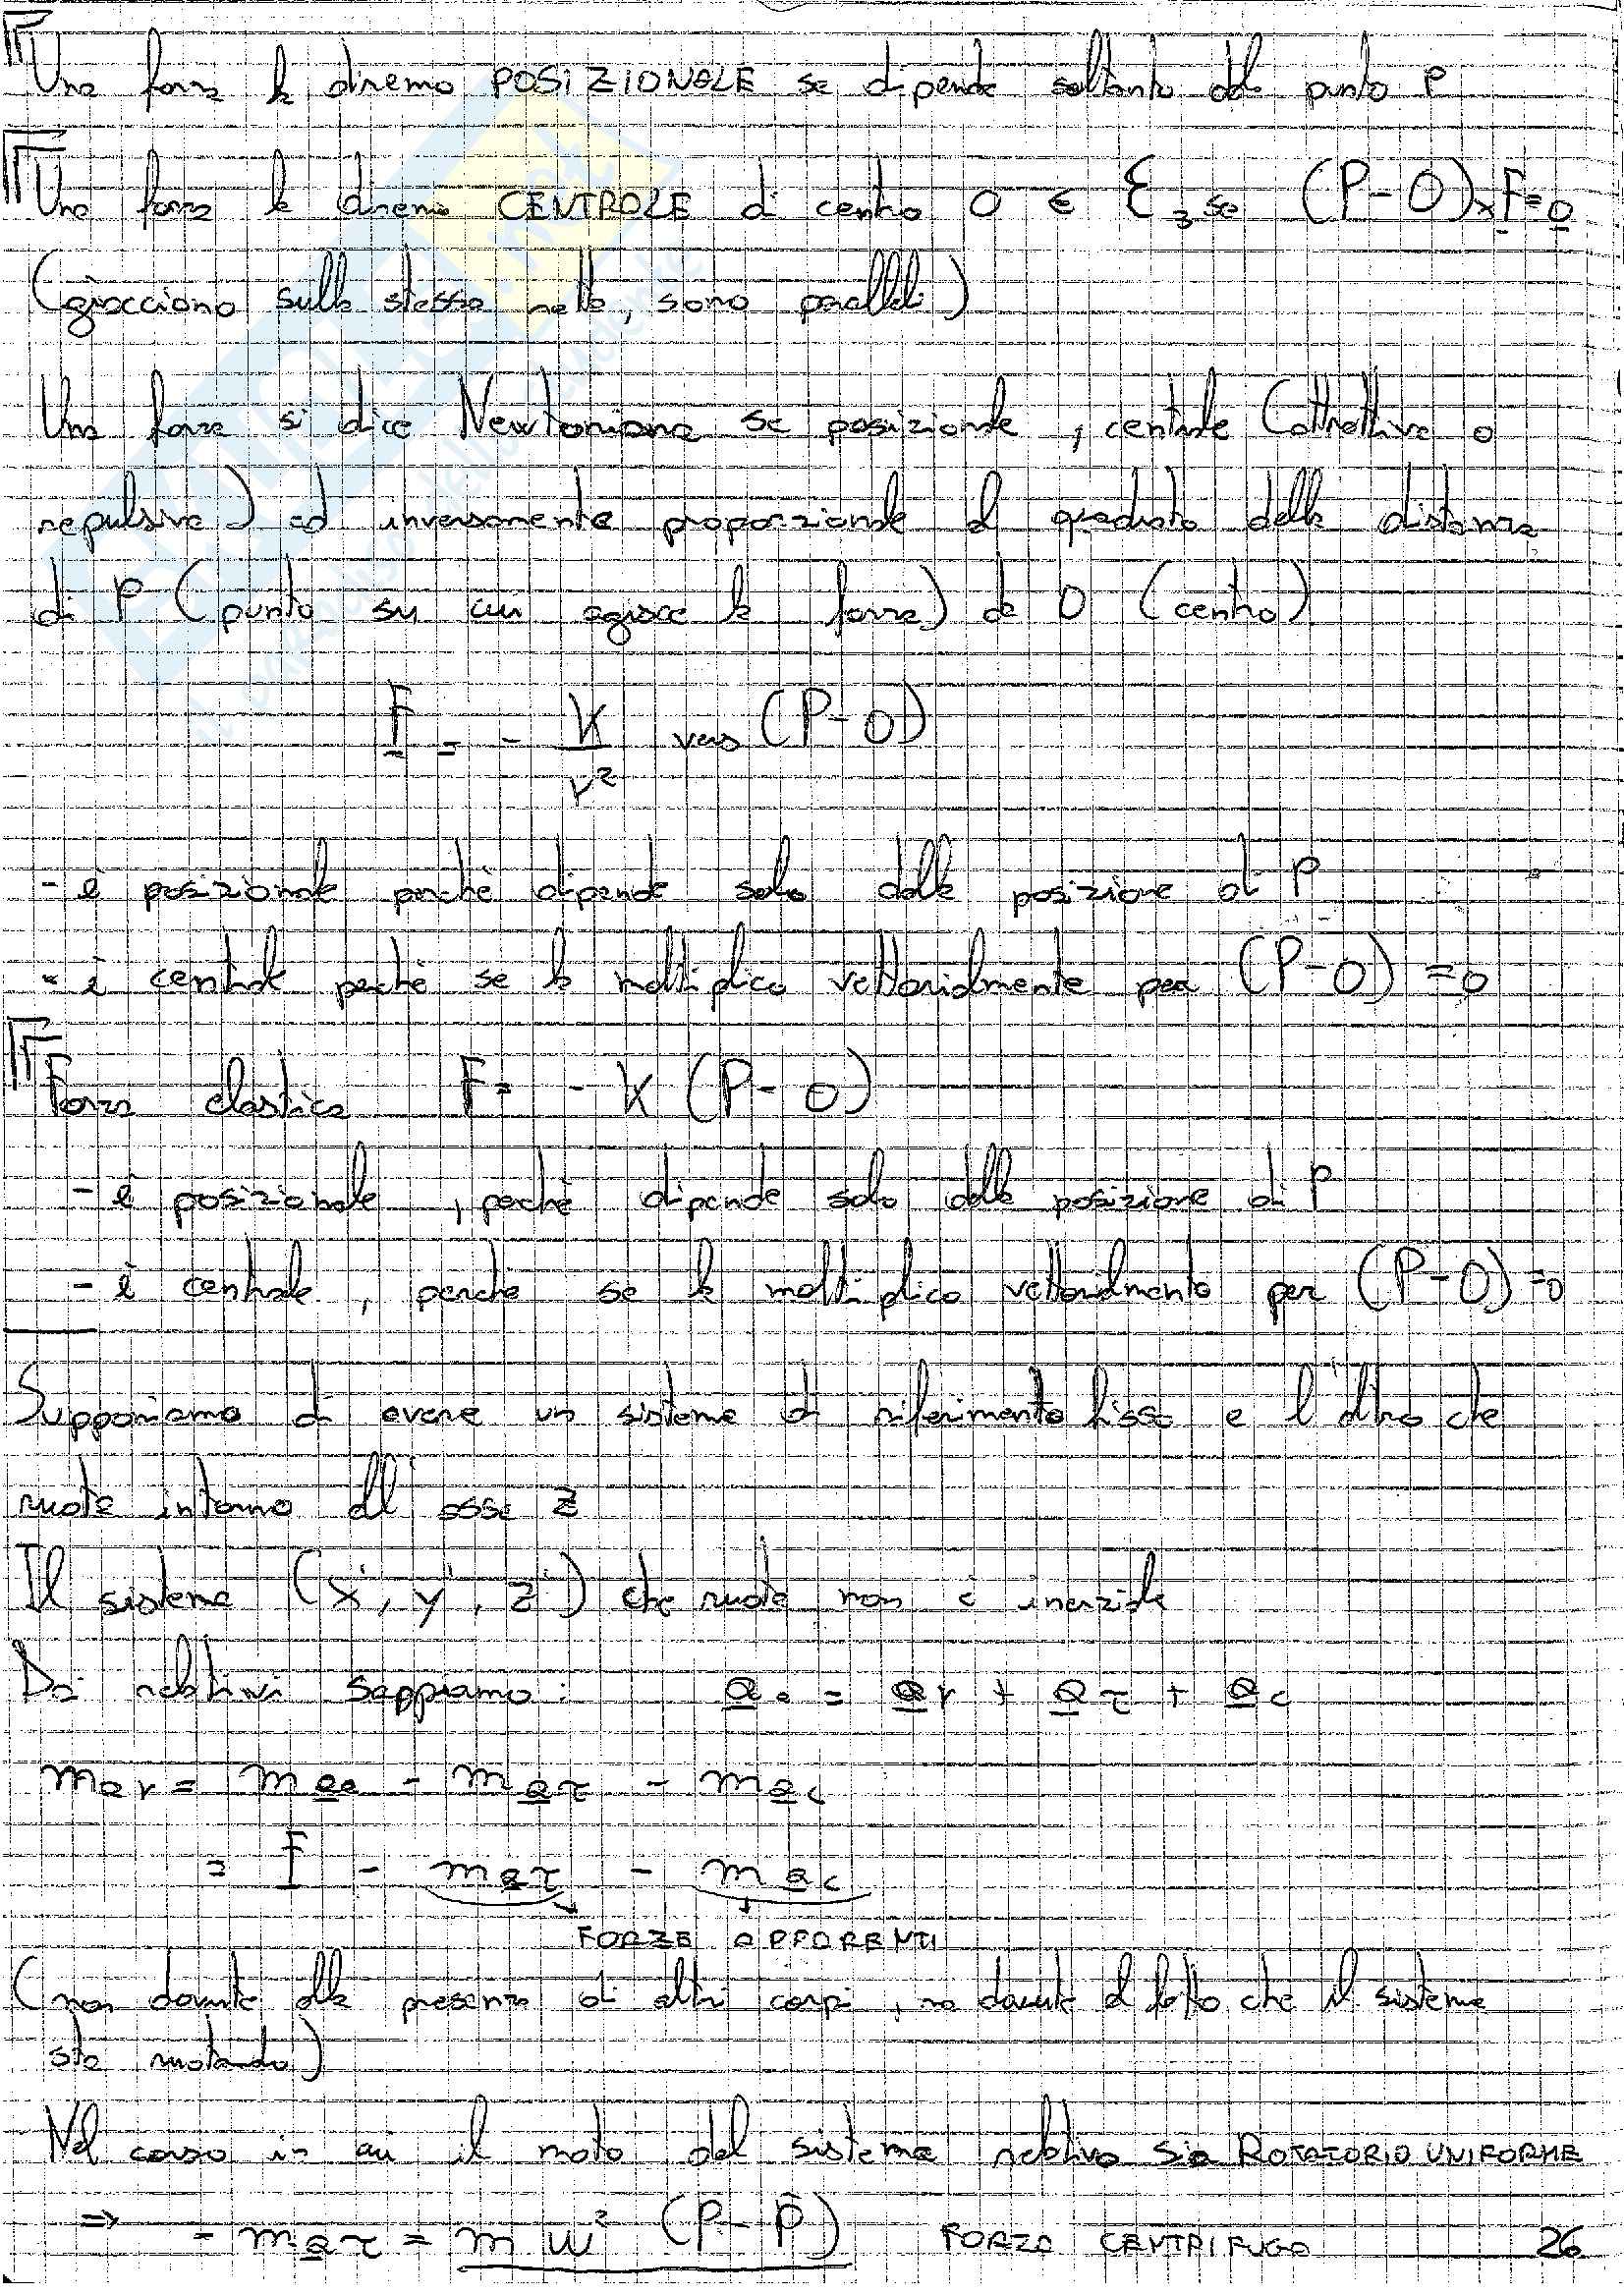 Una forza la diremo POSIZIONALE se dipende soltanto dal punto P
Una forza la diremo CENTRALE di centro O ∈ Ɛ3 se (P-O)×F=0
(giacciono sulla stessa retta, sono paralleli)
Una forza si dice Newtoniana se posizionale, centrale (attrattiva o
repulsiva) ed inversamente proporzionale al quadrato della distanza
di P (punto su cui agisce la forza) da O (centro)
F = - K/r² vers (P-O)
- è posizionale perché dipende solo dalla posizione di P
- è centrale perché se la moltiplico vettorialmente per (P-O) =0
Forza elastica F= -K (P-O)
- è posizionale, perché dipende solo dalla posizione di P
- è centrale, perché se la moltiplico vettorialmente per (P-O)=0
Supponiamo di avere un sistema di riferimento fisso e l'altro che
ruota intorno all'asse z
Il sistema (x', y', z') che ruota non è inerziale
Dai relativi sappiamo: aa = ar + aτ + ac
mar = maa - maτ - mac
= F - maτ - mac
FORZE APPARENTI
(non dovute alla presenza di altri corpi, ma dovute al fatto che il sistema
sta ruotando)
Nel caso in cui il moto del sistema relativo sia ROTATORIO UNIFORME
⇒ - maτ = m ω² (P-P̂) FORZA CENTRIFUGA 26